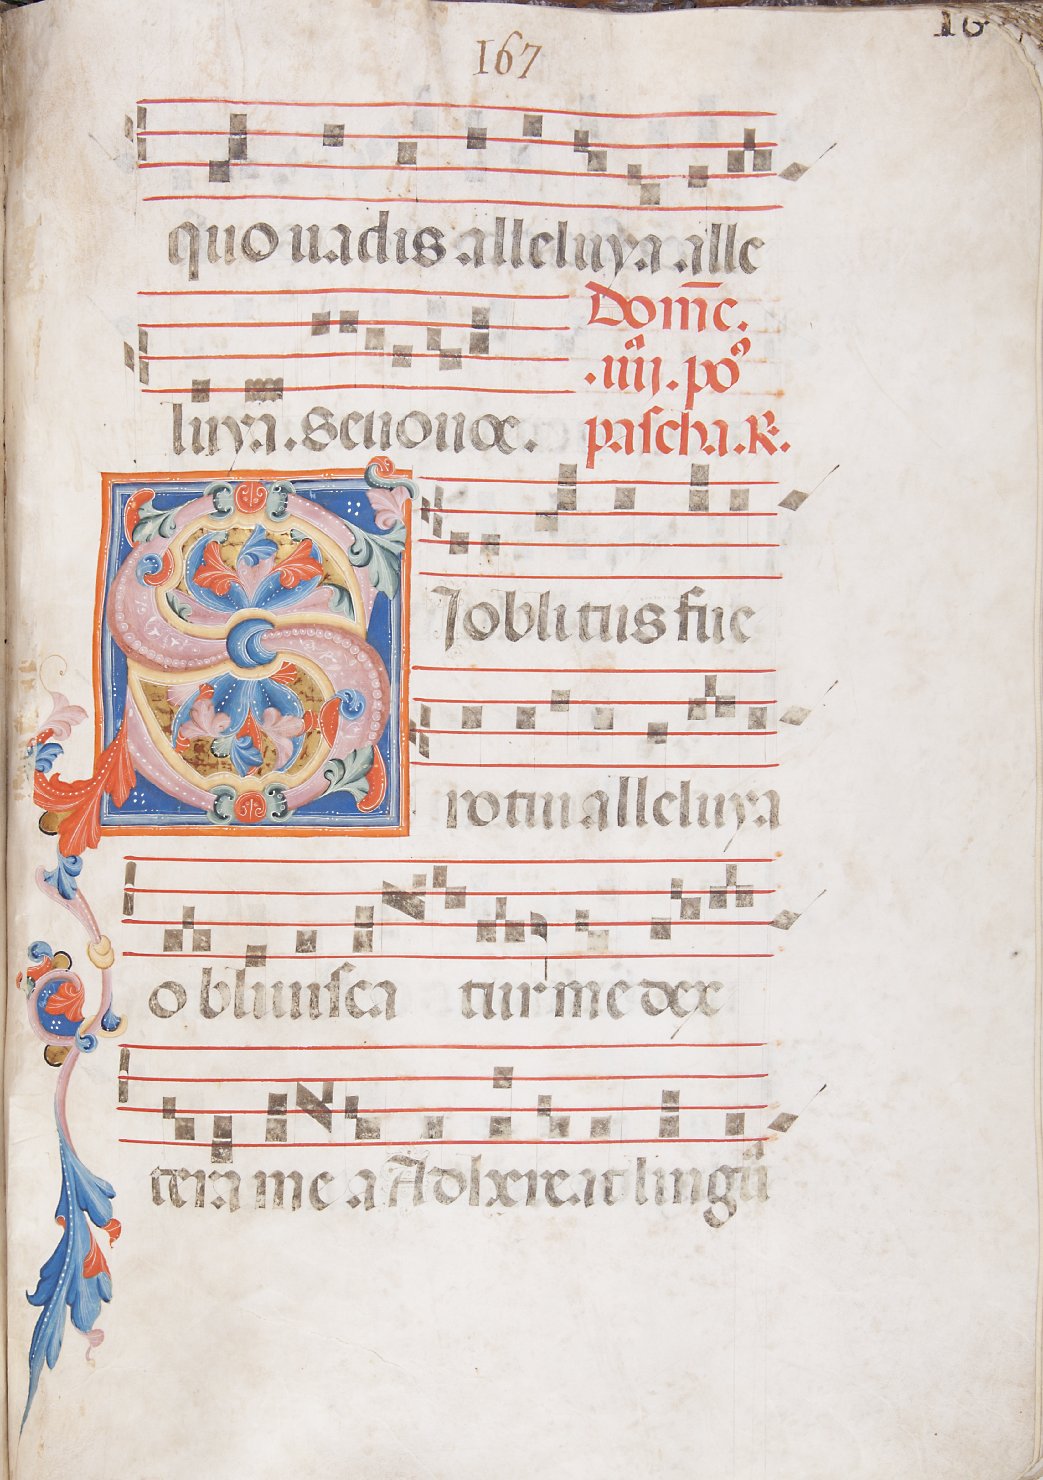 167
quo uadis alleluya alle
luya. Seuouae.
Domc̄.
.iiij. po⁹
pascha. R.
S I oblitus fue
ro tui alleluya
obliuisca tur me dex
tera me a Adhereat lingu